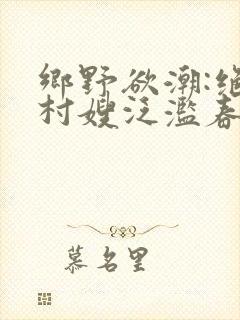 鄉野欲潮:絕
村嫂泛濫春
慕名里